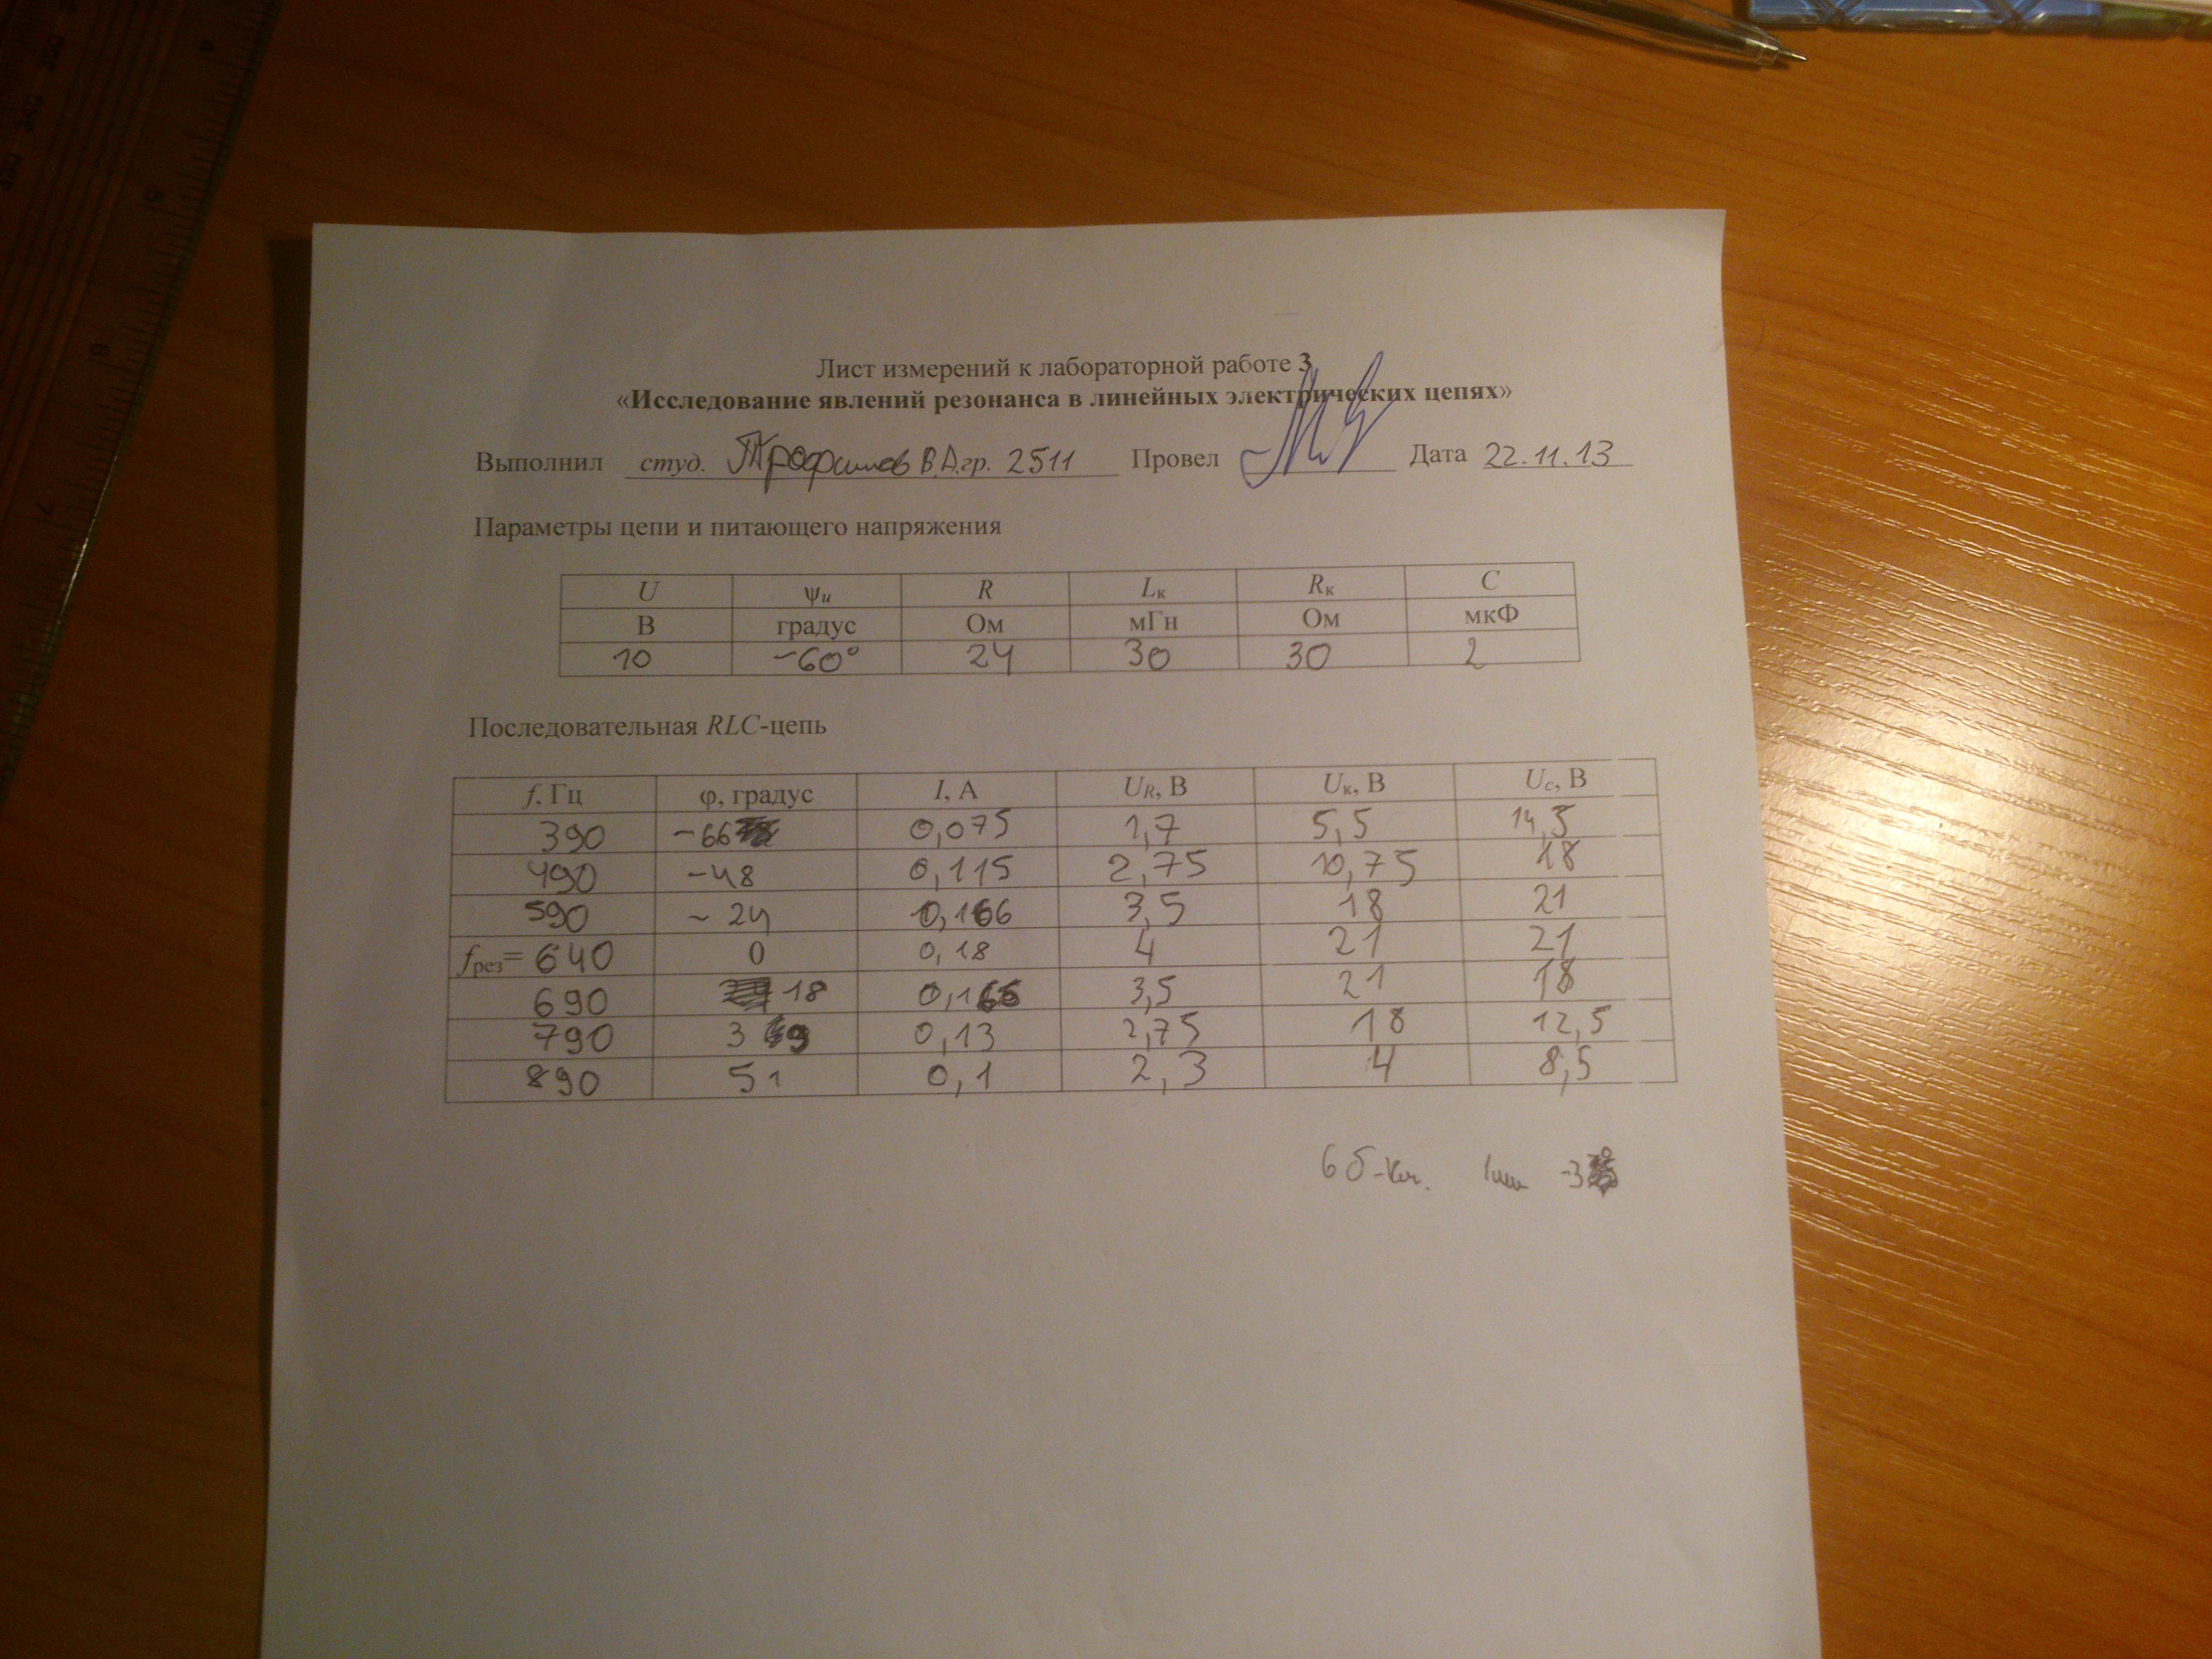 Лист измерений к лабораторной работе 3
«Исследование явлений резонанса в линейных электрических цепях»
Выполнил студ. Трофимов В.А. гр. 2511 Провел Дата 22.11.13
Параметры цепи и питающего напряжения
U ψu R Lк Rк C
В градус Ом мГн Ом мкФ
10 -60° 24 30 30 2
Последовательная RLC-цепь
f, Гц φ, градус I, А UR, В Uк, В Uc, В
390 -66 0,075 1,7 5,5 14,5
490 -48 0,115 2,75 10,75 18
590 -24 0,166 3,5 18 21
fрез= 640 0 0,18 4 21 21
690 18 0,166 3,5 21 18
790 39 0,13 2,75 18 12,5
890 51 0,1 2,3 4 8,5